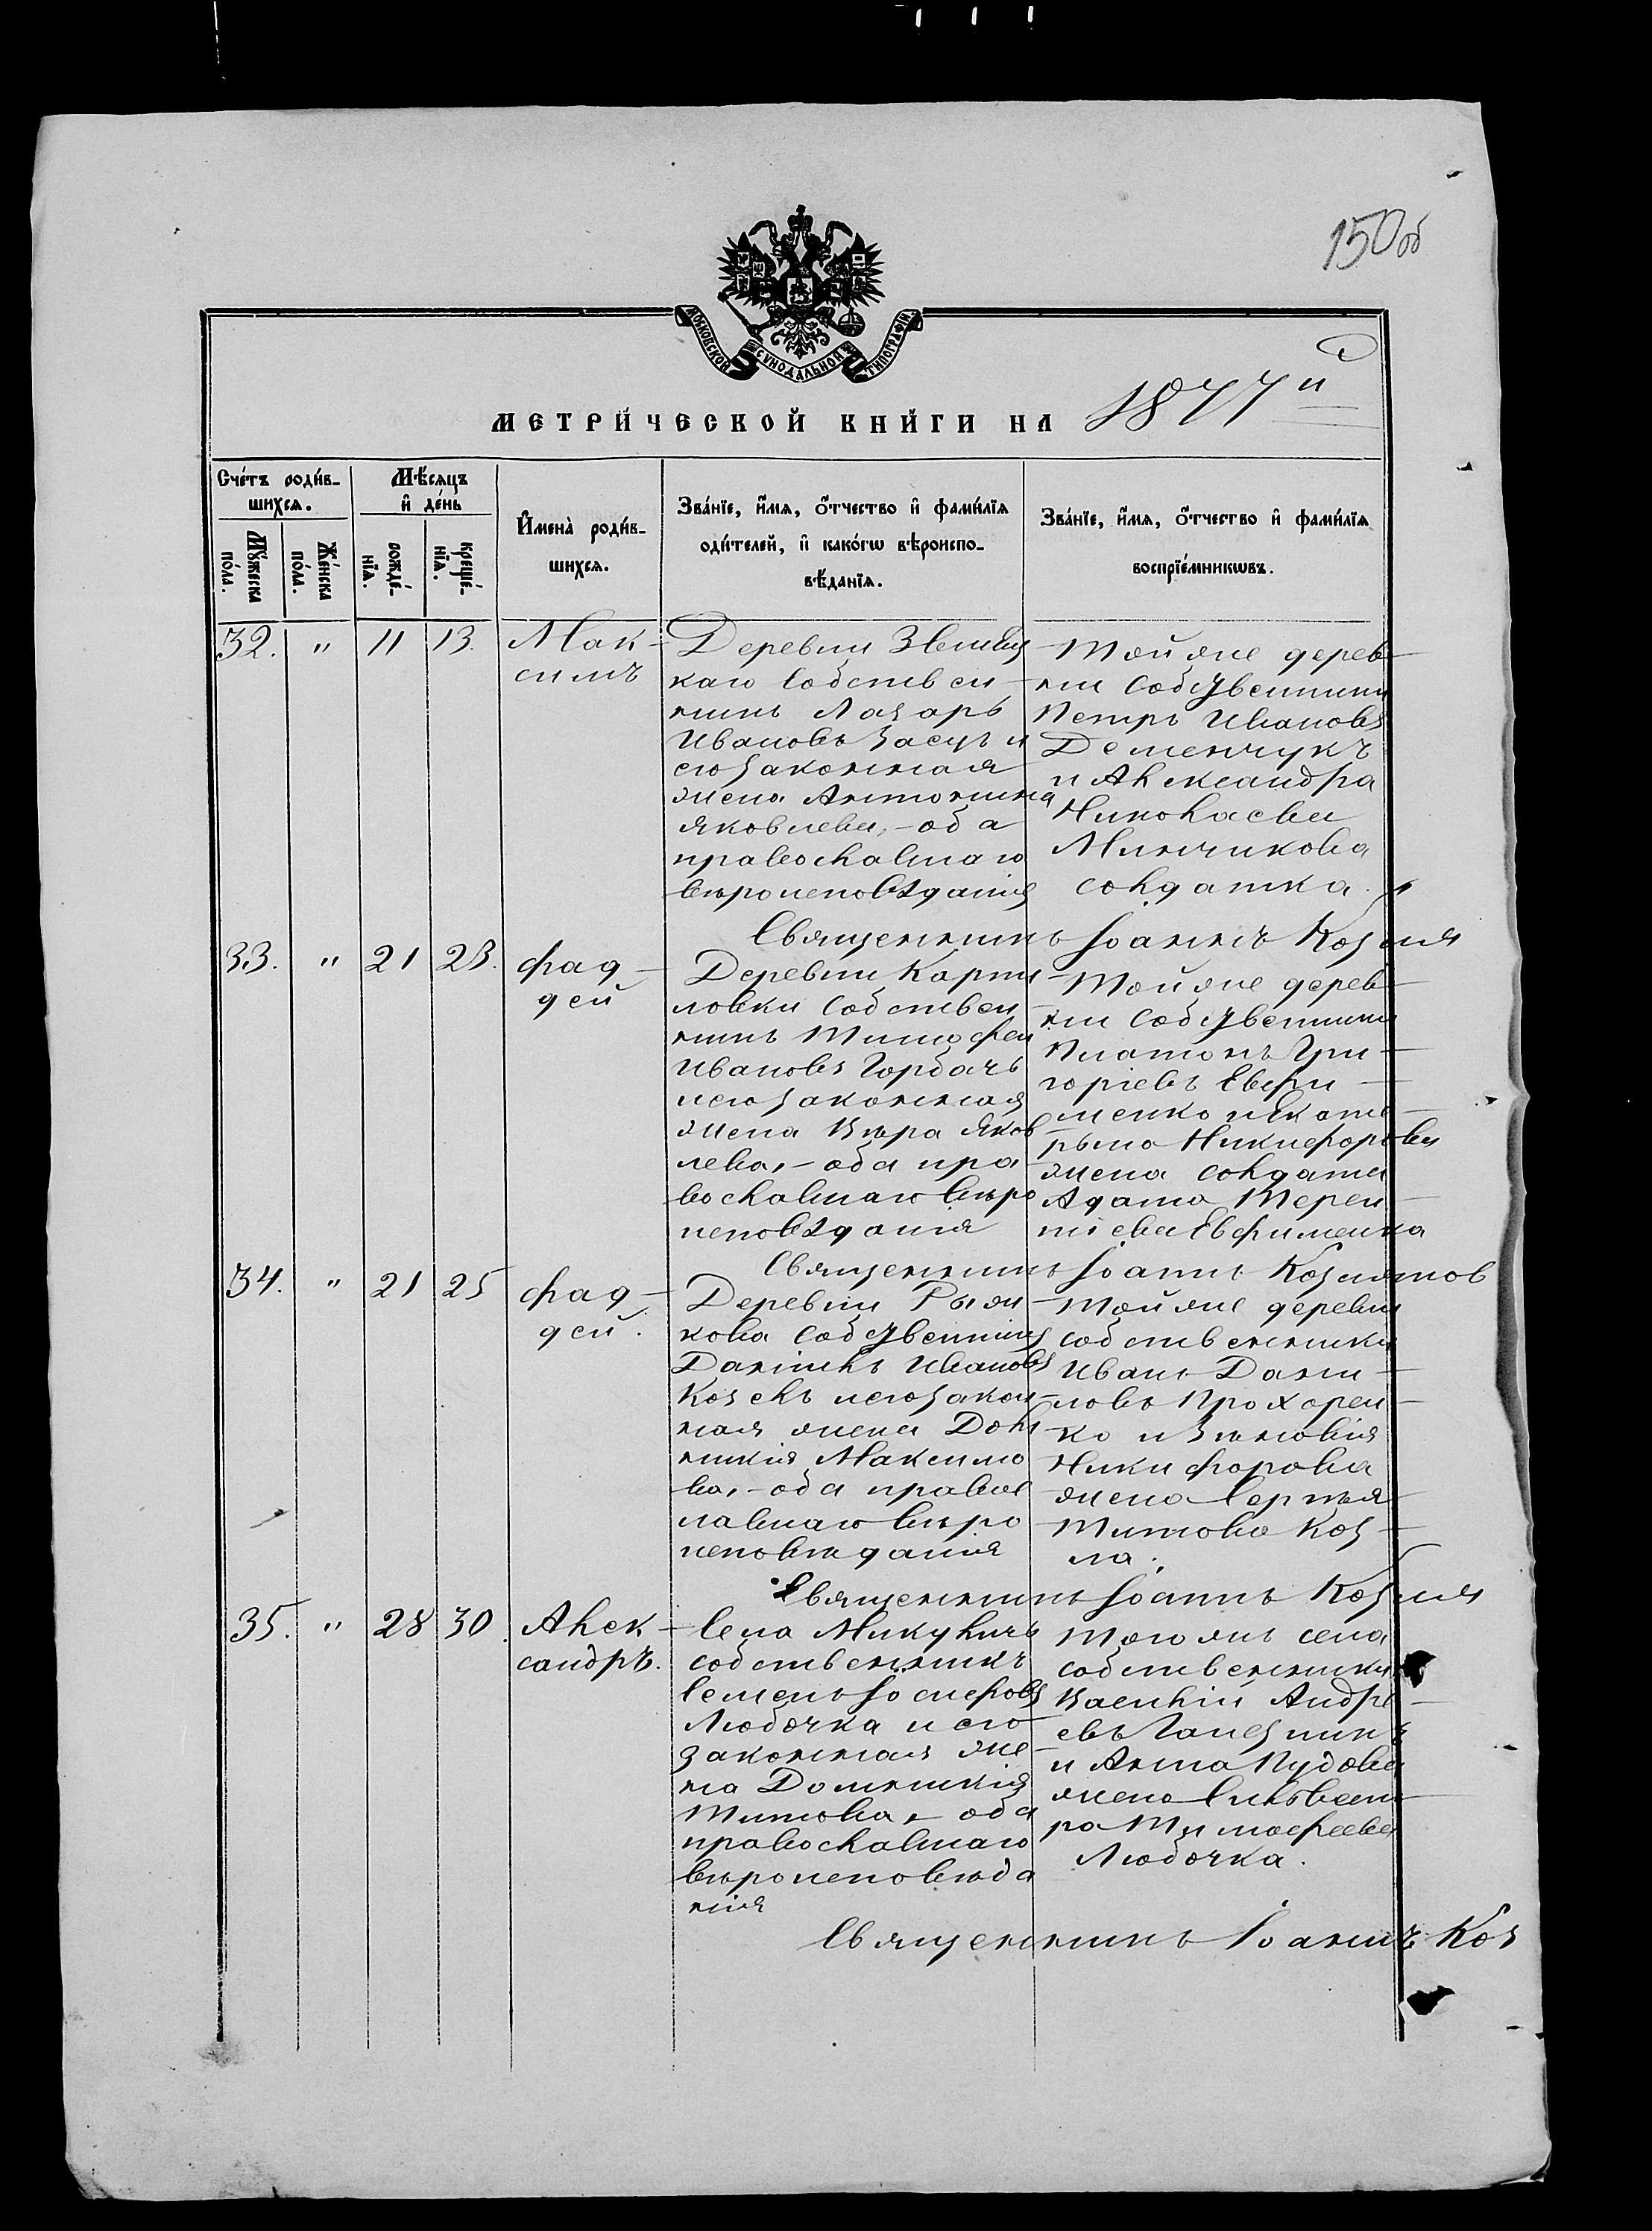 150об
МОСКОВСКОЙ СѴНОДАЛЬНОЙ ТИПОГРАФІИ
МЕТРИ́ЧЕСКОЙ КНИ́ГИ НА 1877й
Сче́тъ роди́в-
шихсѧ.
Мѣ́сѧцъ
и҆ де́нь
И҆мена̀ роди́в-
шихсѧ.
Зва́нїе, и҆́мѧ, ѻ҆́тчество и҆ фами́лїѧ
оди́телей, и҆ како́гѡ вѣроиспо-
вѣ́данїѧ.
Зва́нїе, и҆́мѧ, ѻ҆́тчество и҆ фами́лїѧ
воспрїе́мникѡвъ.
Мꙋ́жеска
по́ла.
Же́нска
по́ла.
рожде́-
нїѧ.
креще́-
нїѧ.
32. " 11 13. Мак-
симъ
Деревни
каго собствен
никъ Лазарь
Ивановъ Засуъ и
его законная
жена Антонина
Яковлева, - оба
православнаго
вѣроисповѣданія
Той же дерев-
ни собственники
Петръ Ивановъ
Деменчукъ
и Александра
Николаева
Минчикова
солдатка.
Священникъ Іоаннъ Козмя
33. " 21 23. Фад-
дей
Деревни Карпи
ловки собствен
никъ Тимофей
Ивановъ Горбачъ
и его законная
жена Вѣра Яков
лева, - оба пра
вославнаго вѣро
исповѣданія
Той же дерев-
ни собственники
Платонъ Гри-
горіевъ Евфи-
менко и Екате-
рина Никифорова
жена солдата
Адама Терен-
тіева Евфименка
Священникъ Іоаннъ Козмятов
34. " 21 25 Фад-
дей.
Деревни Рыжи-
кова собственникъ
Даніилъ Ивановъ
Козелъ и его закон-
ная жена Дом
никія Максимо
ва, - оба правос
лавнаго вѣро
исповѣданія
Той же деревни
собственники
Иванъ Дани-
ловъ Прохорен-
ко и Зѣновія
Никифорова
жена Сергѣя
Титова Коз-
ла.
Священникъ Іоаннъ Козмя
35. " 28 30. Алек-
сандръ.
Села Микуличъ
собственникъ
Семенъ Іосифовъ
Любочка и его
законная же-
на Домникія
Титова, - оба
православнаго
вѣроисповѣда
нія
Того же села
собственники
Василій Андре-
евъ
и Анна Пудова
жена Сильвест-
ра Тимофеева
Любочка.
Священникъ Іоаннъ Коз